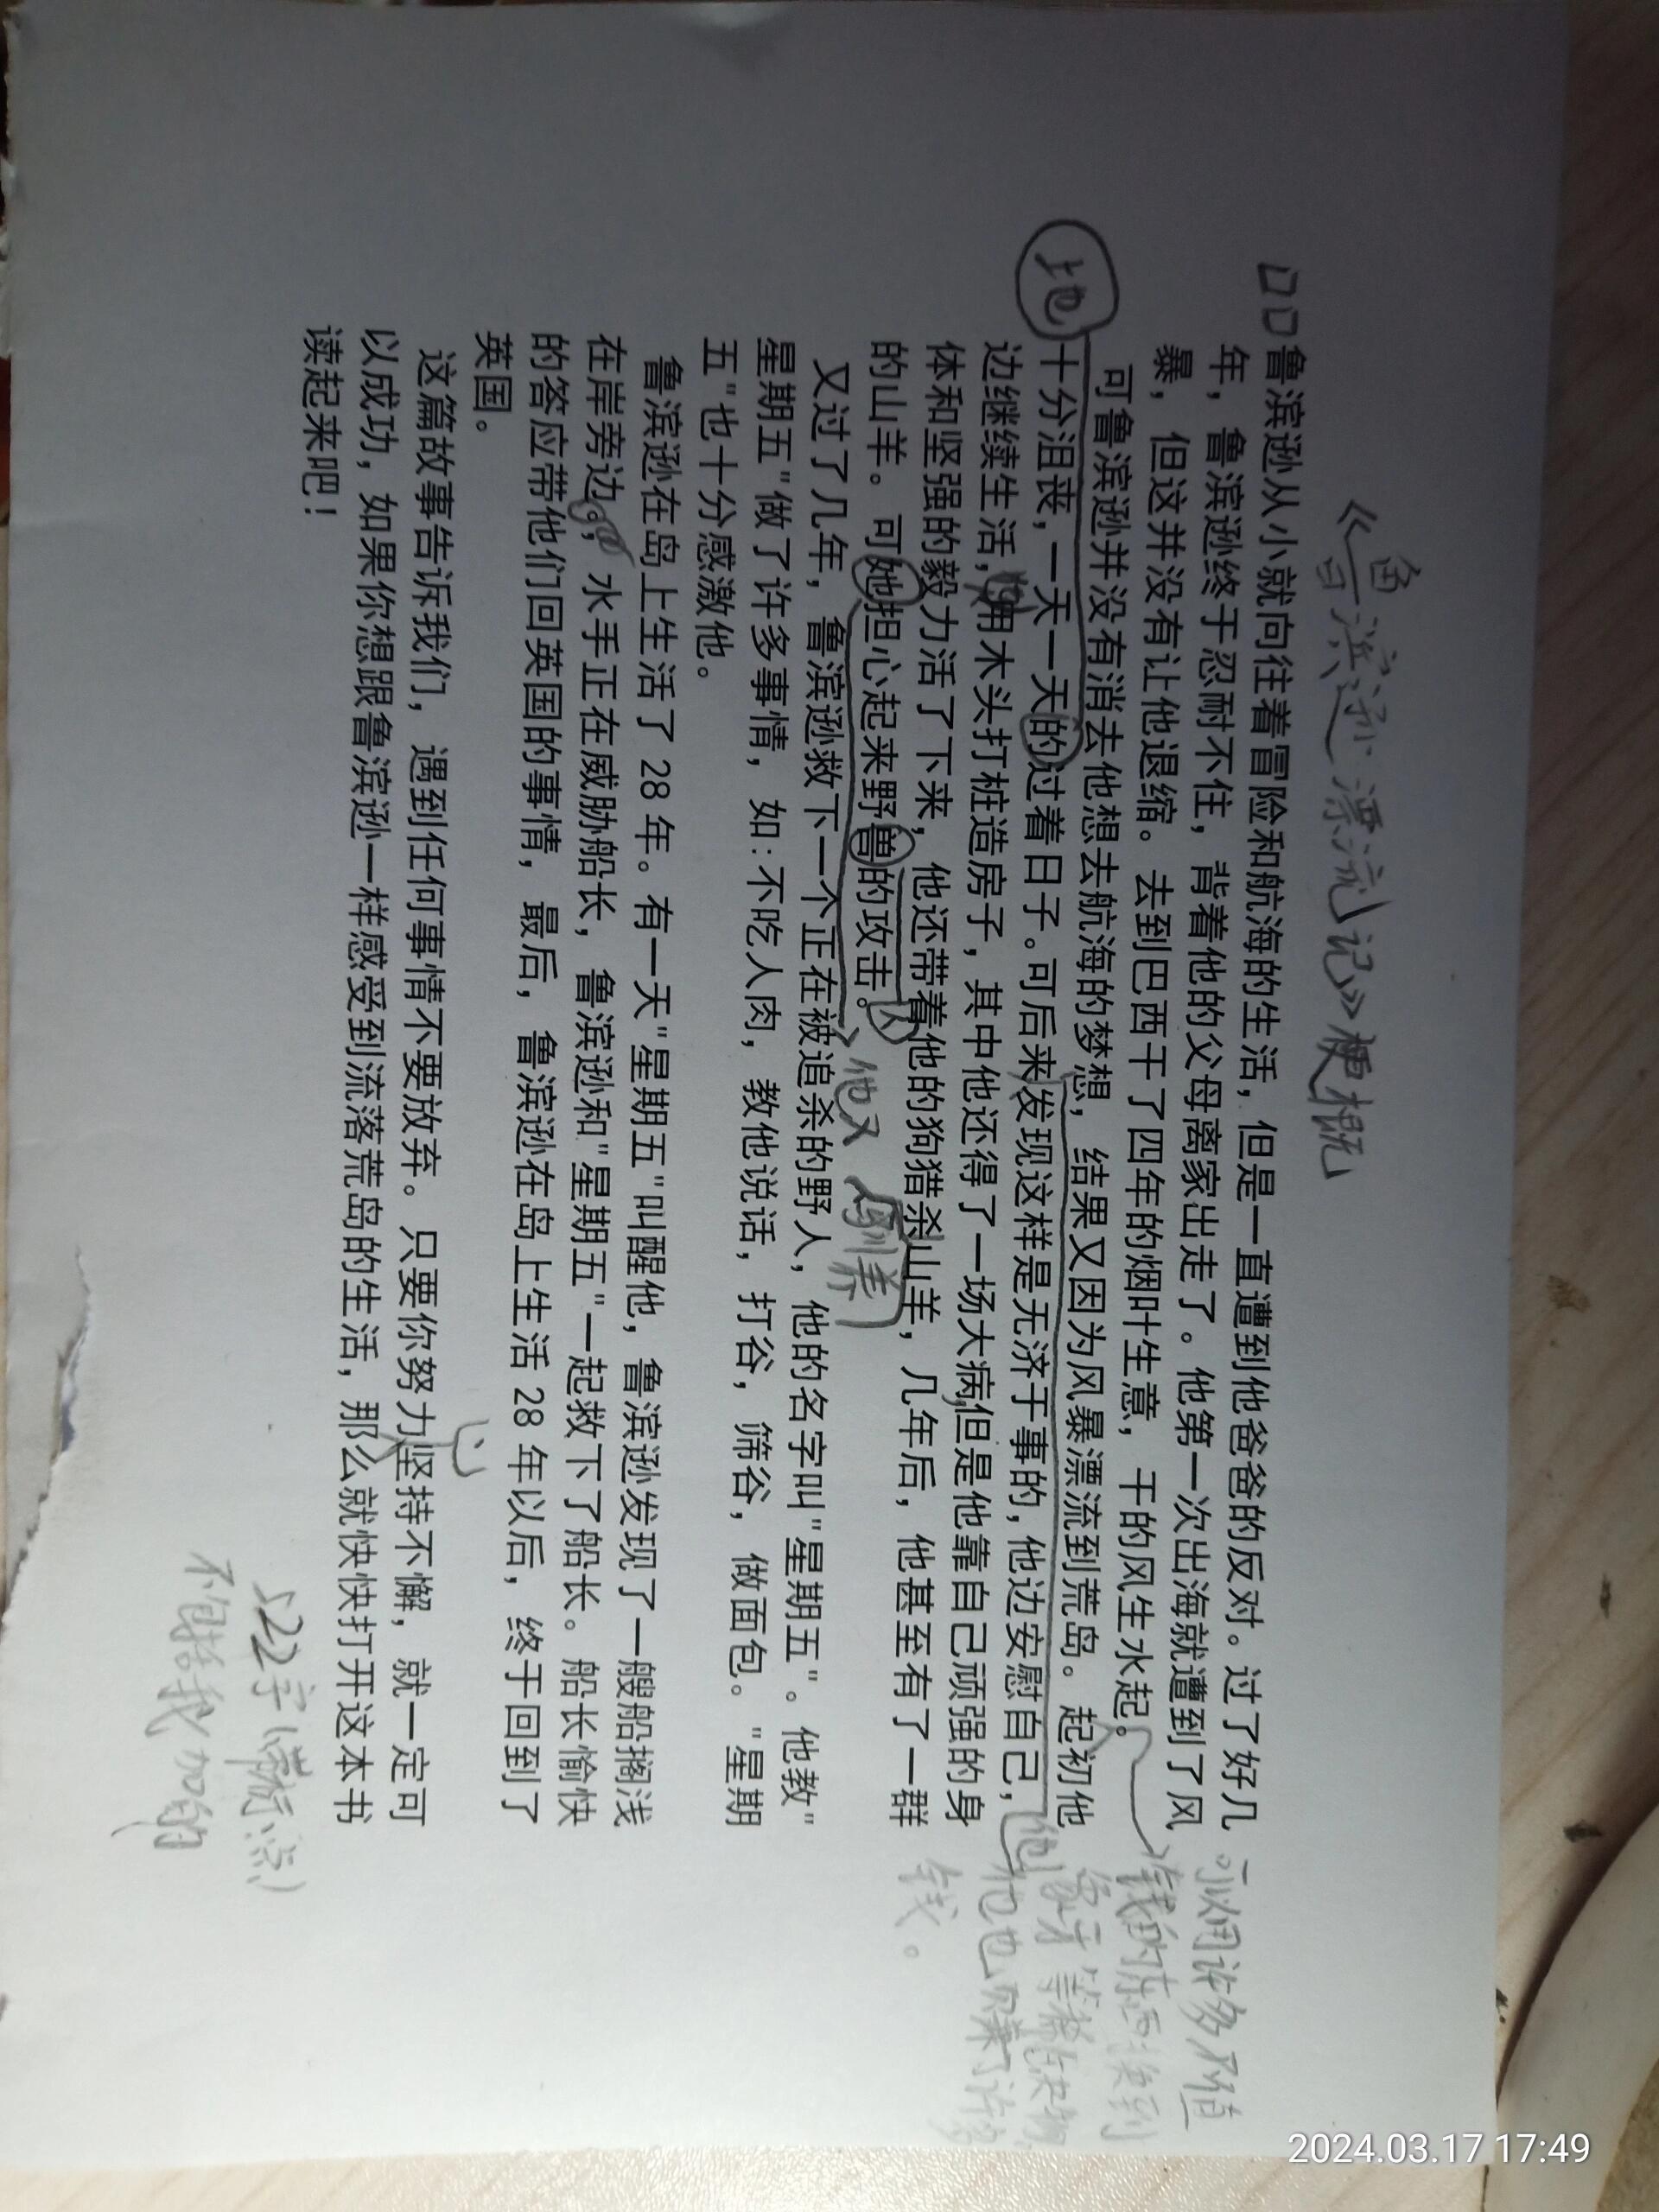 《鲁滨逊漂流记》梗概
口口鲁滨逊从小就向往着冒险和航海的生活，但是一直遭到他爸爸的反对。过了好几
年，鲁滨逊终于忍耐不住，背着他的父母离家出走了。他第一次出海就遭到了风
暴，但这并没有让他退缩。去到巴西干了四年的烟叶生意，干的风生水起。
可鲁滨逊并没有消去他想去航海的梦想，结果又因为风暴漂流到荒岛。起初他
十分沮丧，一天一天的过着日子。可后来发现这样是无济于事的，他边安慰自己，
边继续生活，用木头打桩造房子，其中他还得了一场大病，但是他靠自己顽强的身
体和坚强的毅力活了下来，他还带着他的狗猎杀山羊，几年后，他甚至有了一群
的山羊。可她担心起来野兽的攻击。
又过了几年，鲁滨逊救下一个正在被追杀的野人，他的名字叫"星期五"。他教"
星期五"做了许多事情，如：不吃人肉，教他说话，打谷，筛谷，做面包。"星期
五"也十分感激他。
鲁滨逊在岛上生活了 28 年。有一天"星期五"叫醒他，鲁滨逊发现了一艘船搁浅
在岸旁边，水手正在威胁船长，鲁滨逊和"星期五"一起救下了船长。船长愉快
的答应带他们回英国的事情，最后，鲁滨逊在岛上生活 28 年以后，终于回到了
英国。
这篇故事告诉我们，遇到任何事情不要放弃。只要你努力坚持不懈，就一定可
以成功，如果你想跟鲁滨逊一样感受到流落荒岛的生活，那么就快快打开这本书
读起来吧！
地
他又
驯养
、
可以用许多不值
钱的东西换到
象牙等
他也赚了许多
钱。
522字（带标点）
不包括我加的
2024.03.17 17:49